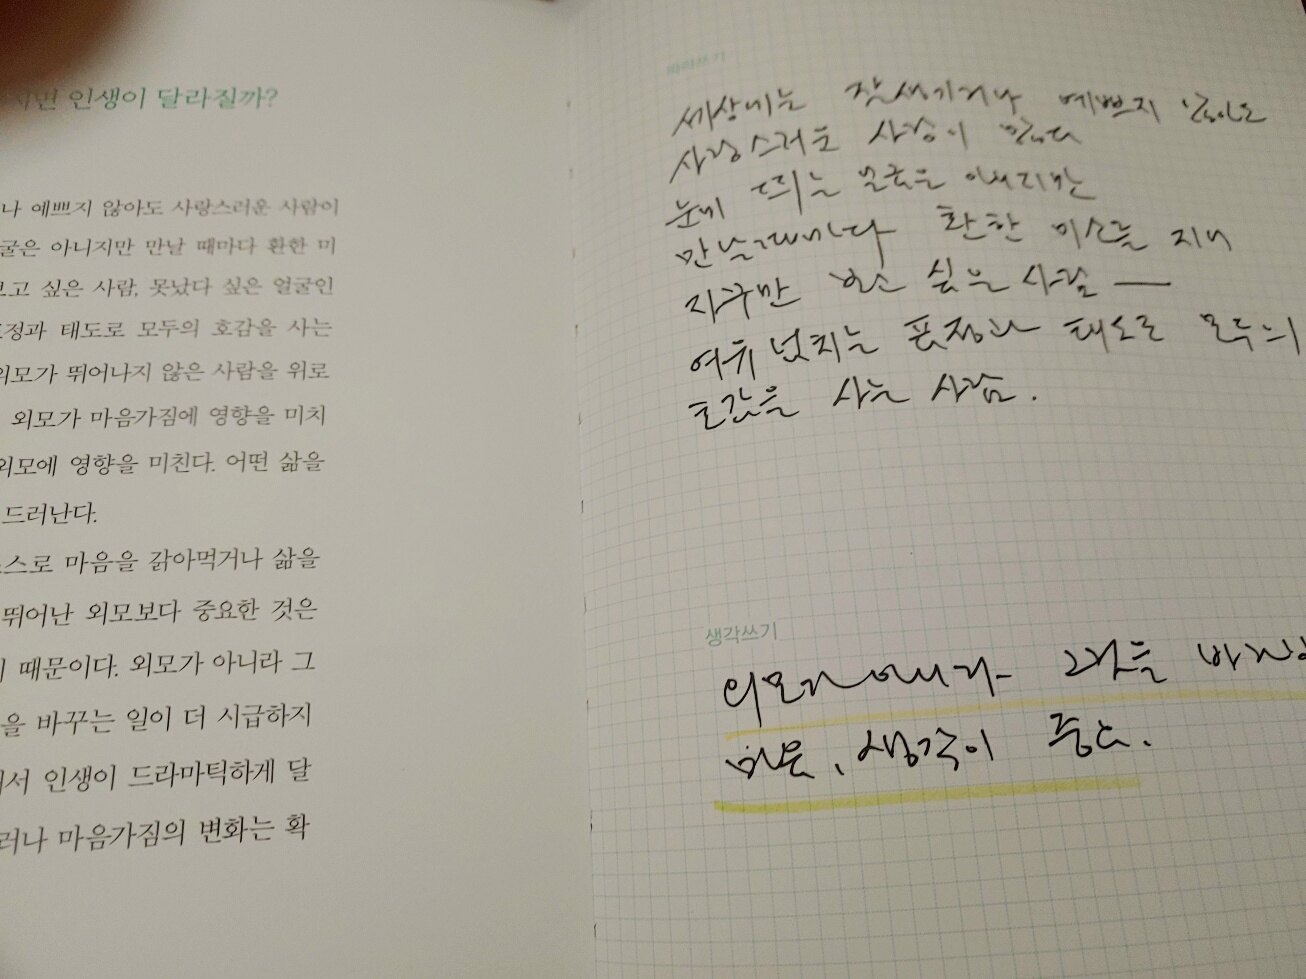 인생이 달라질까?
나 예쁘지 않아도 사랑스러운 사람이
굴은 아니지만 만날 때마다 환한 미
보고 싶은 사람, 못났다 싶은 얼굴인
표정과 태도로 모두의 호감을 사는
외모가 뛰어나지 않은 사람을 위로
외모가 마음가짐에 영향을 미치
외모에 영향을 미친다. 어떤 삶을
드러난다.
스스로 마음을 갉아먹거나 삶을
뛰어난 외모보다 중요한 것은
때문이다. 외모가 아니라 그
을 바꾸는 일이 더 시급하지
서 인생이 드라마틱하게 달
러나 마음가짐의 변화는 확
따라쓰기
세상에는 잘생기거나 예쁘지 않아도
사랑스러운 사람이 많다
눈에 띄는 얼굴은 아니지만
만날때마다 환한 미소를 지녀
자꾸만 보고 싶은 사람 —
여유 넘치는 표정과 태도로 모두의
호감을 사는 사람.
생각쓰기
외모가 아니라 그것을
마음, 생각이 중요.